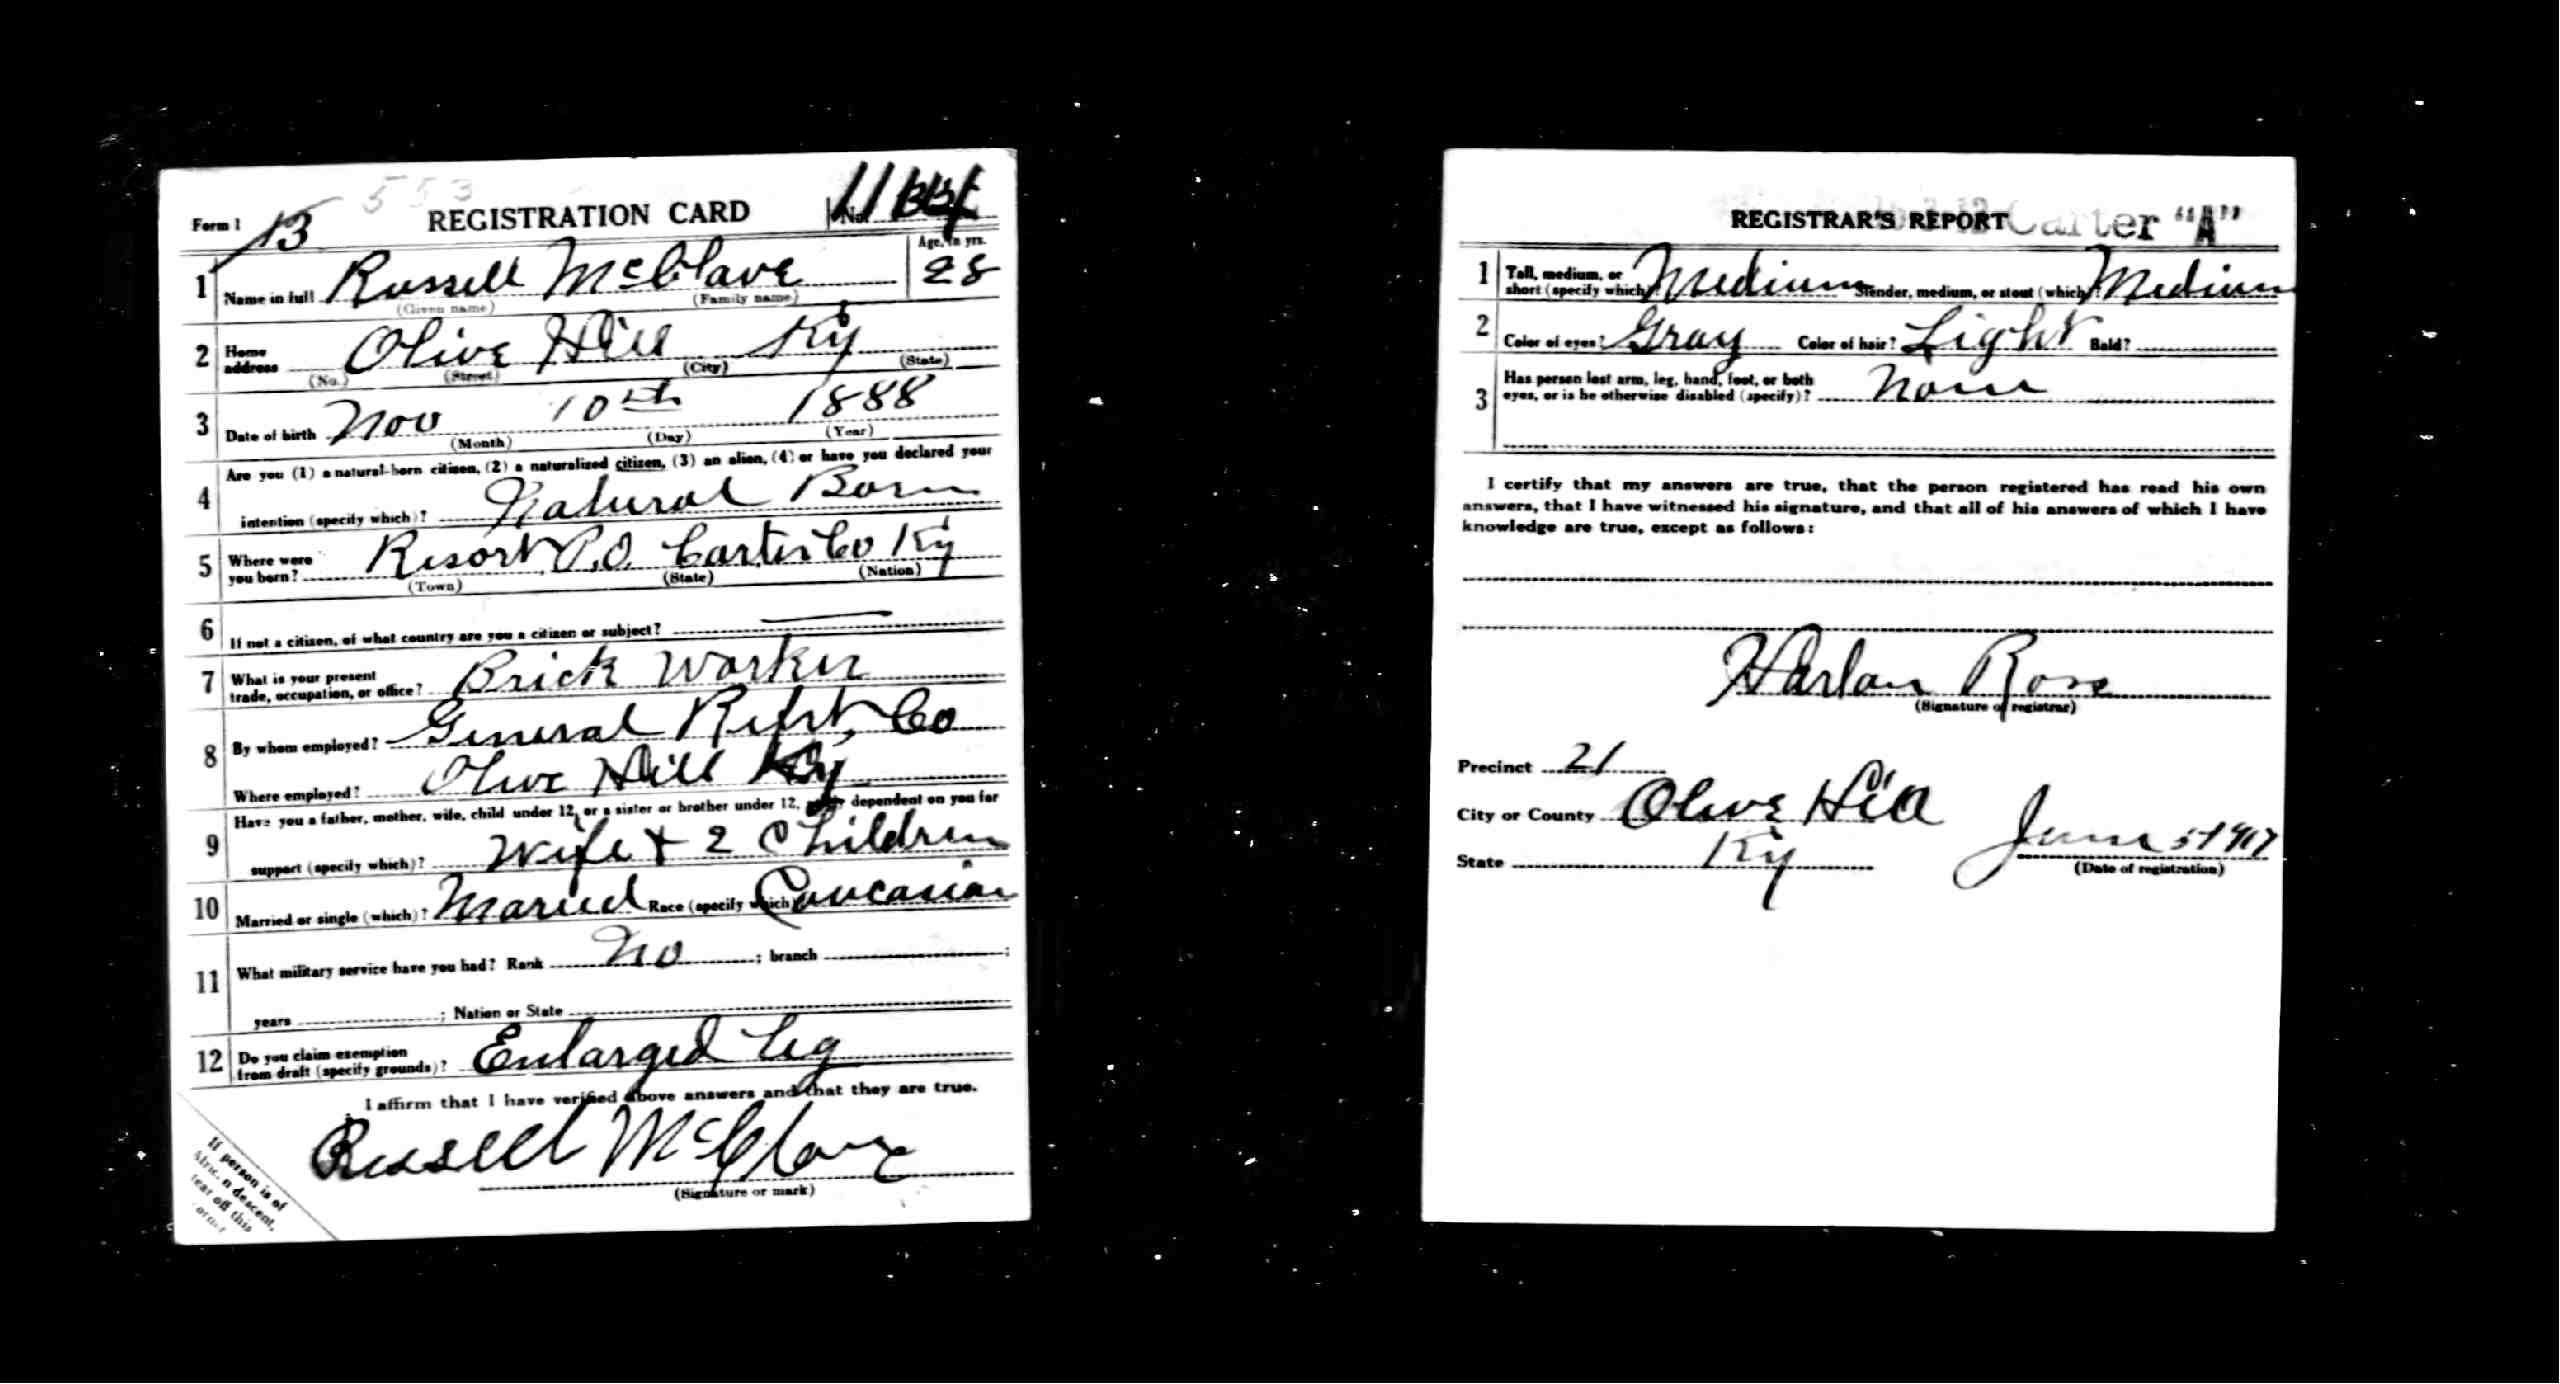 553
Form 1 13 REGISTRATION CARD No.
1 Name in full Russell McClave Age, in yrs. 28
(Given name) (Family name)
2 Home address Olive Hill Ky
(No.) (Street) (City) (State)
3 Date of birth Nov 10th 1888
(Month) (Day) (Year)
Are you (1) a natural-born citizen, (2) a naturalized citizen, (3) an alien, (4) or have you declared your
4 intention (specify which)? Natural Born
5 Where were you born? Resort P.O. Carter Co Ky
(Town) (State) (Nation)
6 If not a citizen, of what country are you a citizen or subject? —
7 What is your present trade, occupation, or office? Brick Worker
8 By whom employed? General Refrt, Co
Where employed? Olive Hill Ky
Have you a father, mother, wife, child under 12, or a sister or brother under 12, dependent on you for
9 support (specify which)? Wife + 2 Children
10 Married or single (which)? Maried Race (specify which) Caucasian
11 What military service have you had? Rank No ; branch ;
years ; Nation or State
12 Do you claim exemption from draft (specify grounds)? Enlarged Leg
I affirm that I have verified above answers and that they are true.
Russell McClave
(Signature or mark)
If person is of
African descent,
tear off this
corner
REGISTRAR'S REPORT Carter "A"
1 Tall, medium, or short (specify which)? Medium Slender, medium, or stout (which)? Medium
2 Color of eyes? Gray Color of hair? Light Bald?
3 Has person lost arm, leg, hand, foot, or both eyes, or is he otherwise disabled (specify)? None
I certify that my answers are true, that the person registered has read his own
answers, that I have witnessed his signature, and that all of his answers of which I have
knowledge are true, except as follows:
Harlan Rose
(Signature of registrar)
Precinct 21
City or County Olive Hill
State Ky June 5 1917
(Date of registration)